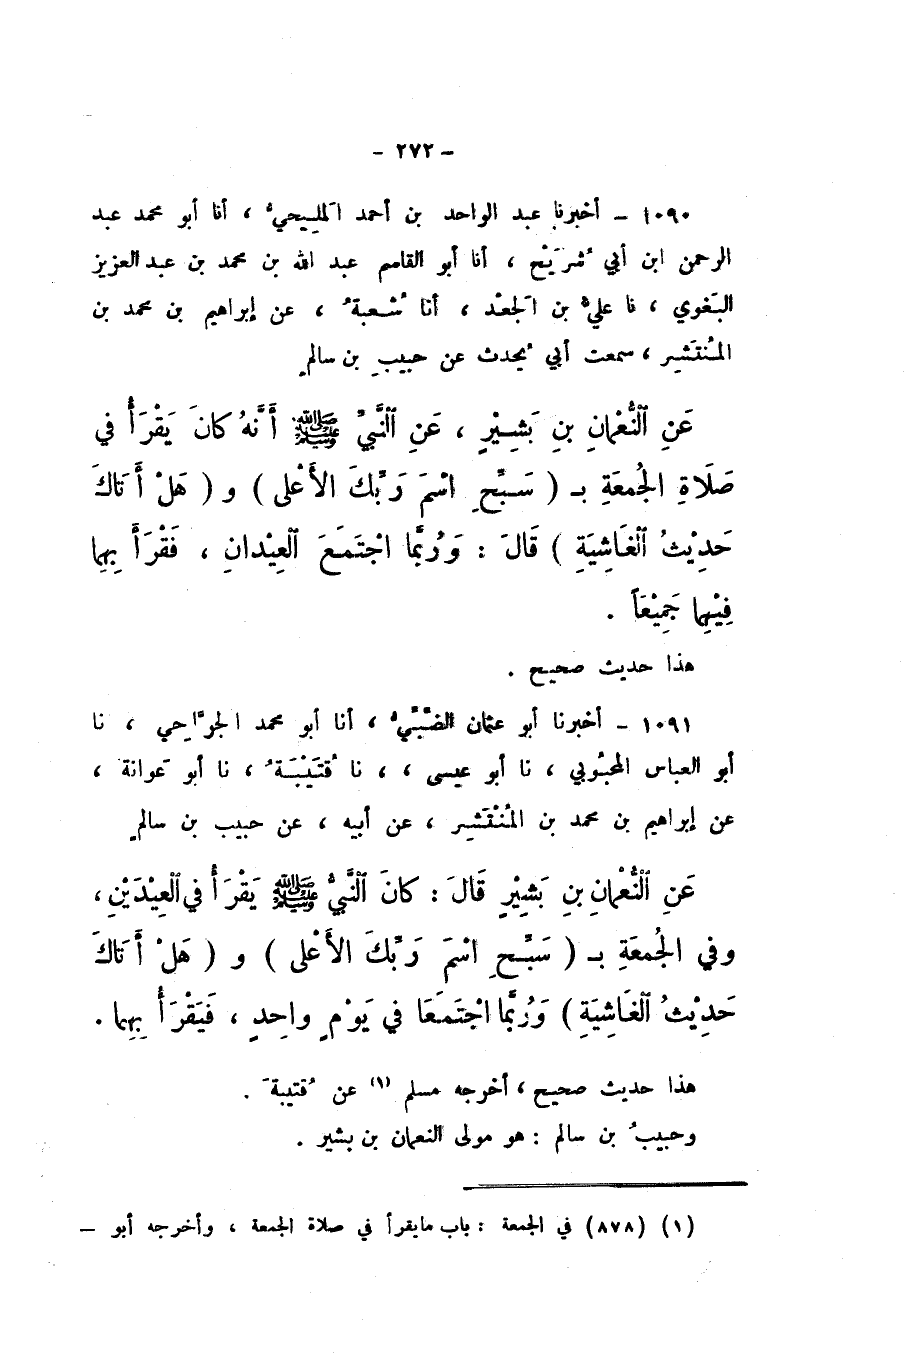 - ٢٧٢ -
١٠٩٠ - أخبرنا عبد الواحد بن أحمد المَلِيحيُّ ، أنا أبو محمد عبد
الرحمن ابن أبي شُرَيْح ، أنا أبو القاسم عبد الله بن محمد بن عبد العزيز
البَغوي ، نا عليُّ بن الجَعْد ، أنا شُعبةُ ، عن إبراهيم بن محمد بن
المُنْتَشِر ، سمعت أبي يُحدث عن حبيبِ بن سالمٍ
عَنِ ٱلنُّعْمانِ بنِ بَشِيْرٍ ، عَنِ ٱلنَّبيِّ ﷺ أَنَّهُ كانَ يَقْرَأُ في
صَلَاةِ الجُمعَةِ بـ ( سَبِّحِ اسْمَ رَبِّكَ الأَعْلى ) و ( هَلْ أَتاكَ
حَدِيْثُ ٱلْغَاشِيَةِ ) قَالَ : وَرُبَّما اجْتَمَعَ ٱلْعِيْدانِ ، فَقْرَأَ بِهِما
فِيْهِما جَمِيْعَاً .
هذا حديث صحيح .
١٠٩١ - أخبرنا أبو عثمان الضَّبِّيُّ ، أنا أبو محمد الجرَّاحي ، نا
أبو العباس المحبُوبي ، نا أبو عيسى ، ، نا قُتَيْبَةُ ، نا أبو عَوانة ،
عن إبراهيم بن محمد بن المُنْتَشِر ، عن أبيه ، عن حبيب بن سالمٍ
عَنِ ٱلنُّعْمانِ بنِ بَشِيْرٍ قَالَ : كانَ ٱلنَّبيُّ ﷺ يَقْرَأُ في ٱلْعِيْدَيْنِ ،
وفي الجُمعَةِ بـ ( سَبِّحِ اسْمَ رَبِّكَ الأَعْلى ) و ( هَلْ أَتاكَ
حَدِيْثُ ٱلْغَاشِيَةِ ) وَرُبَّما اجْتَمَعَا في يَوْمٍ واحِدٍ ، فَيَقْرَأُ بِهِما .
هذا حديث صحيح ، أخرجه مسلم (١) عن قُتيبةَ .
وحبيبُ بن سالم : هو مولى النعمان بن بشير .
(١) (٨٧٨) في الجمعة : باب مايقرأ في صلاة الجمعة ، وأخرجه أبو –